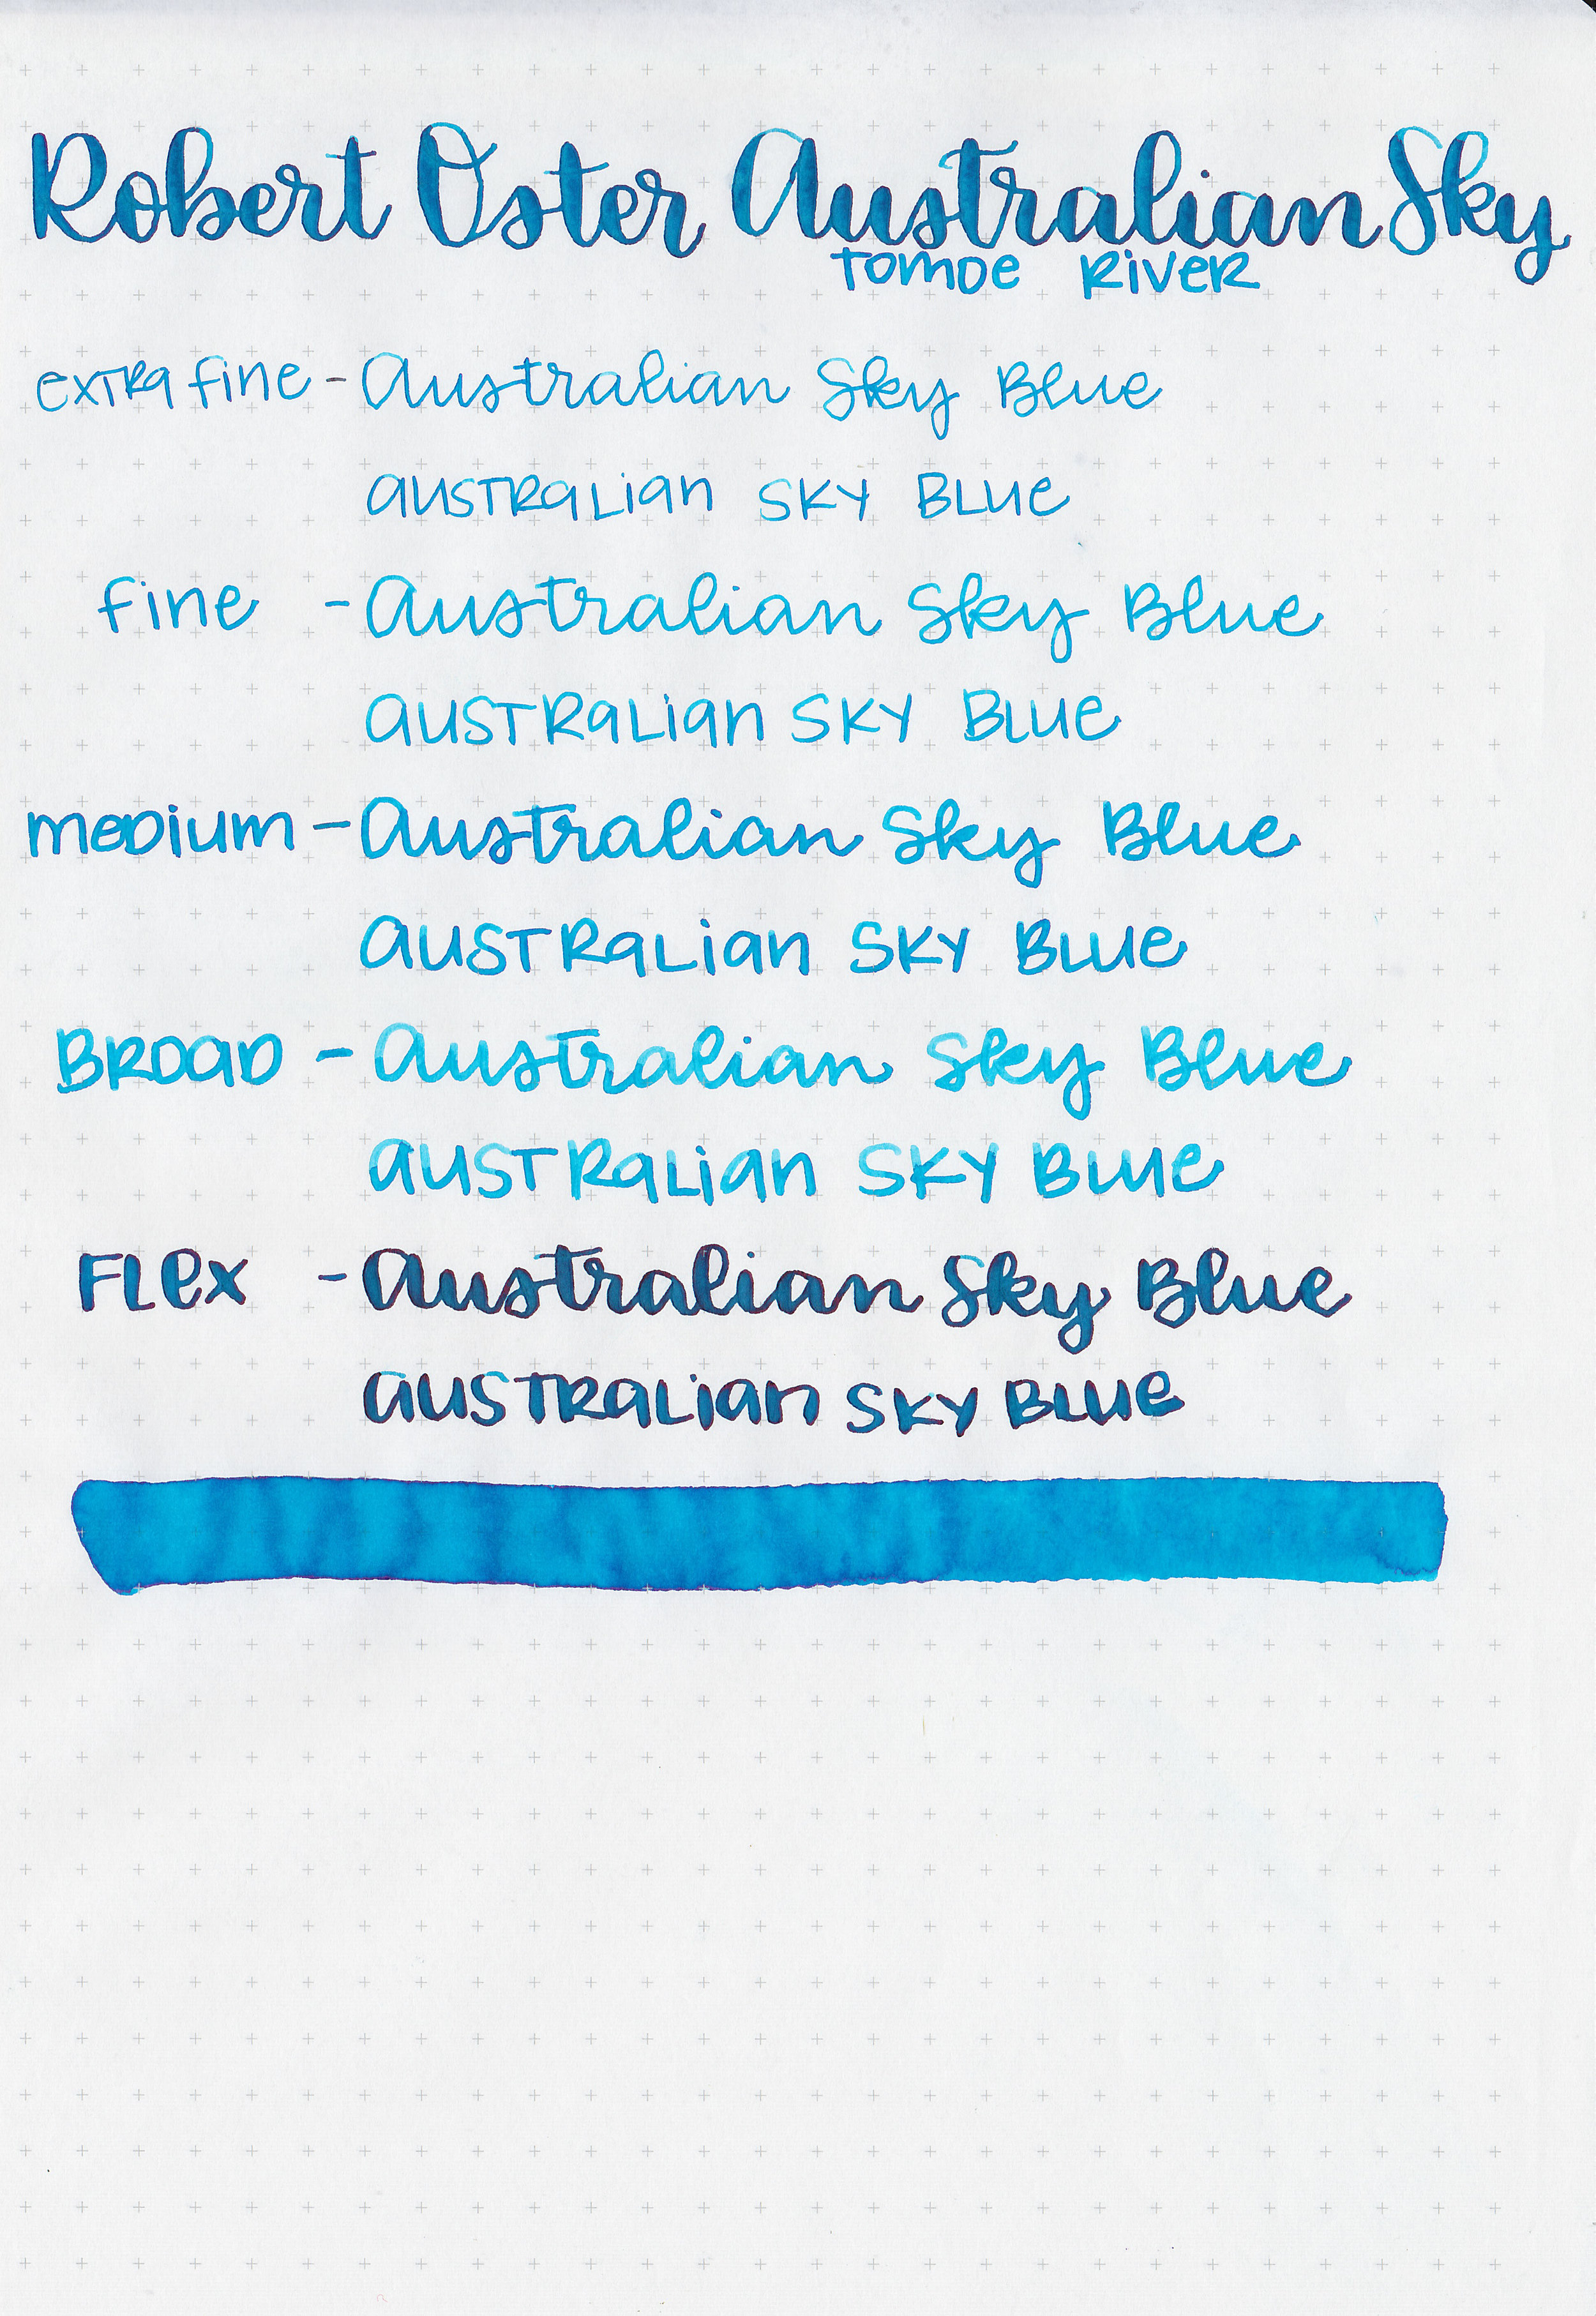 Robert Oster Australian Sky
Tomoe River
extra fine - Australian Sky Blue
Australian Sky Blue
fine - Australian Sky Blue
Australian Sky Blue
medium - Australian Sky Blue
Australian Sky Blue
Broad - Australian Sky Blue
Australian Sky Blue
Flex - Australian Sky Blue
Australian Sky Blue